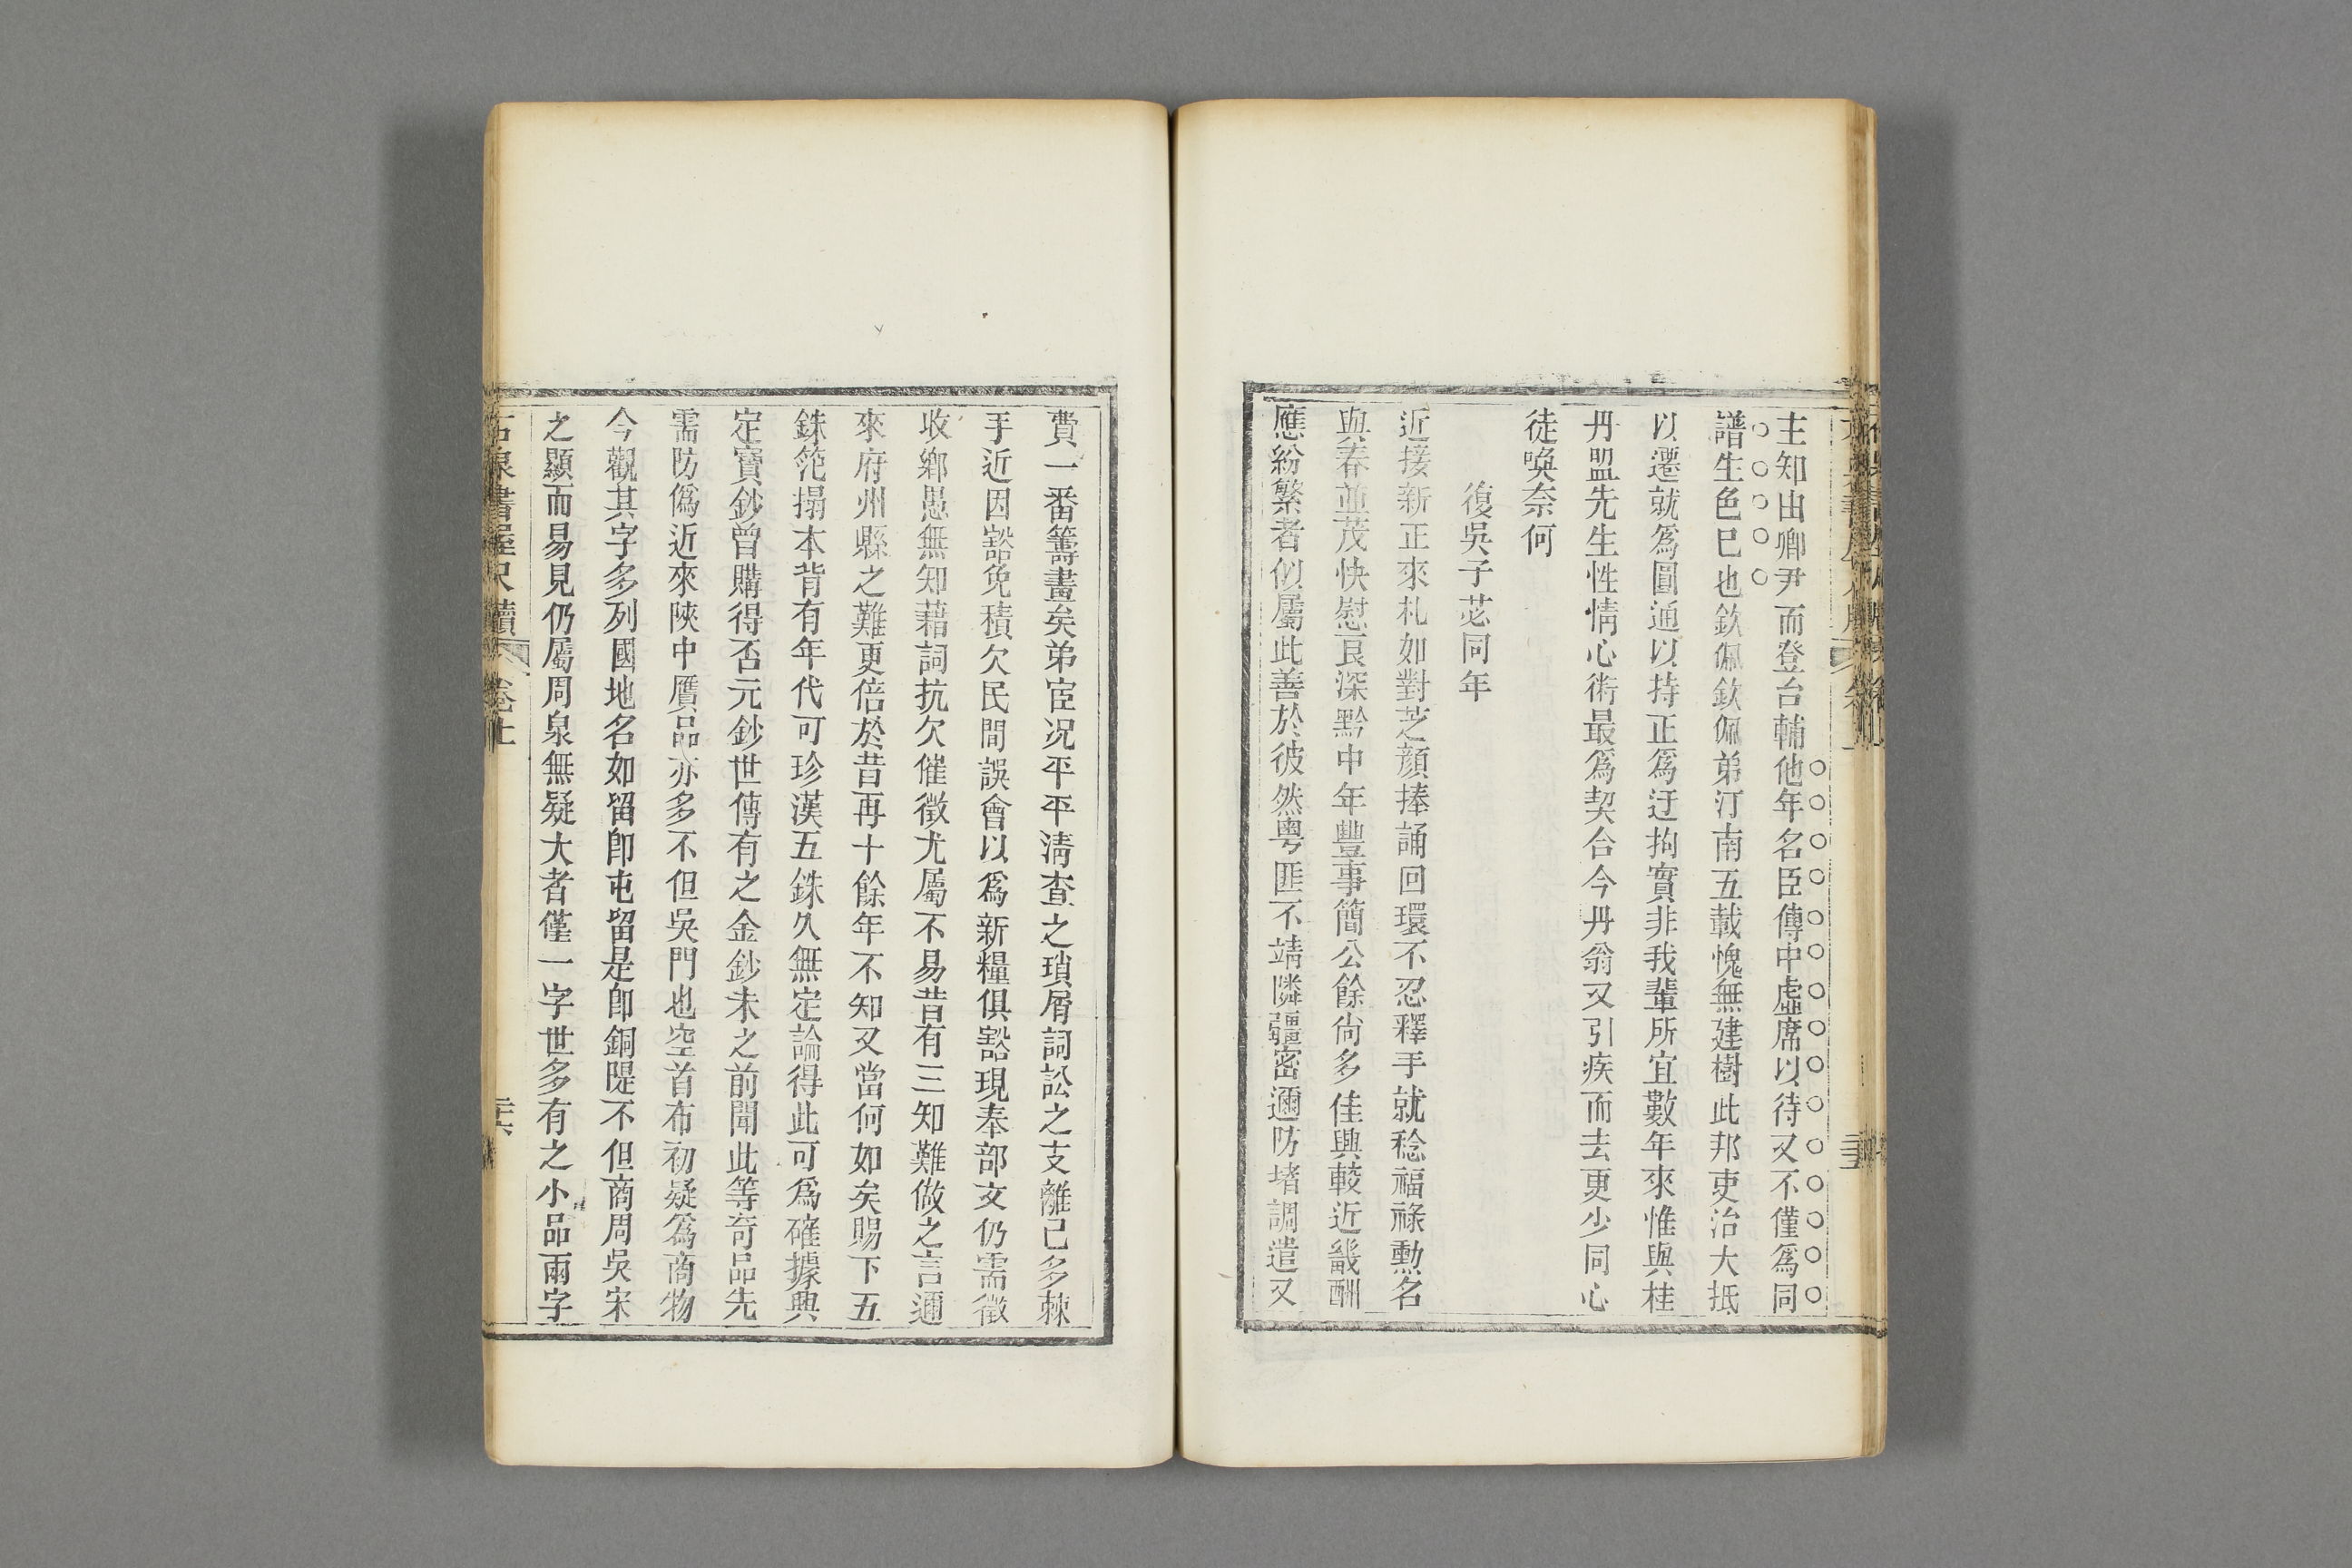 主知由卿尹而登台輔他年名臣傳中虛席以待又不僅爲同
譜生色巳也欽佩欽佩弟汀南五載愧無建樹此邦吏治大抵
以遷就爲圓通以持正爲迂拘實非我輩所宜數年來惟與桂
丹盟先生性情心術最爲契合今丹翁又引疾而去更少同心
徒喚奈何
復吳子苾同年
近接新正來札如對芝顔捧誦回環不忍釋手就稔福祿勲名
與春並茂快慰良深黔中年豐事簡公餘尙多佳興較近畿酬
應紛繁者似屬此善於彼然粤匪不靖隣疆密邇防堵調遣又
費一番籌畫矣弟宦况平平淸查之瑣屑詞訟之支離已多棘
手近因豁免積欠民間誤會以爲新糧俱豁現奉部文仍需徵
收鄕愚無知藉詞抗欠催徵尤屬不易昔有三知難做之言邇
來府州縣之難更倍於昔再十餘年不知又當何如矣賜下五
銖笵搨本背有年代可珍漢五銖久無定論得此可爲確據興
定寶鈔曾購得否元鈔世傳有之金鈔未之前聞此等奇品先
需防僞近來陜中贋品亦多不但吳門也空首布初疑爲商物
今觀其字多列國地名如留卽屯留是卽銅隄不但商周吳宋
之顯而易見仍屬周泉無疑大者僅一字世多有之小品兩字
古泉書屋尺牘 卷上 二十六